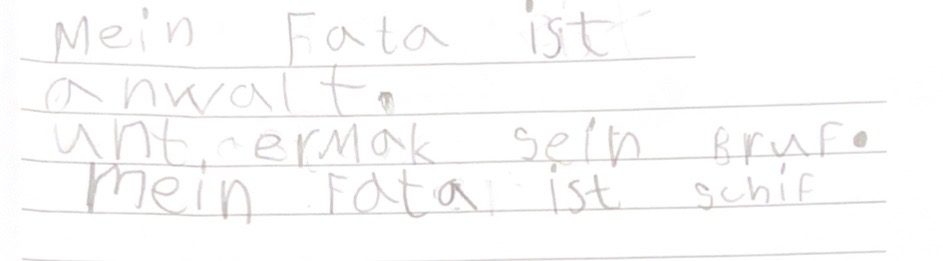 Mein Fata ist
anwalt.
unt, ermak sein Bruf.
Mein Fata ist schif